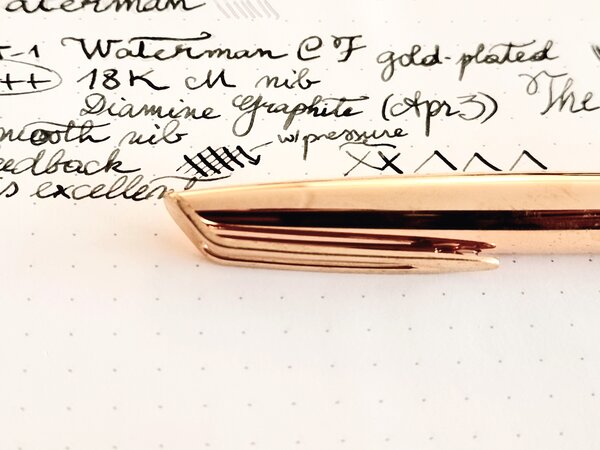 aterman
T-1 Waterman CF gold-plated
++ 18K M nib The
Diamine Graphite (Apr3)
mooth nib w/pressure
edback
s excellen